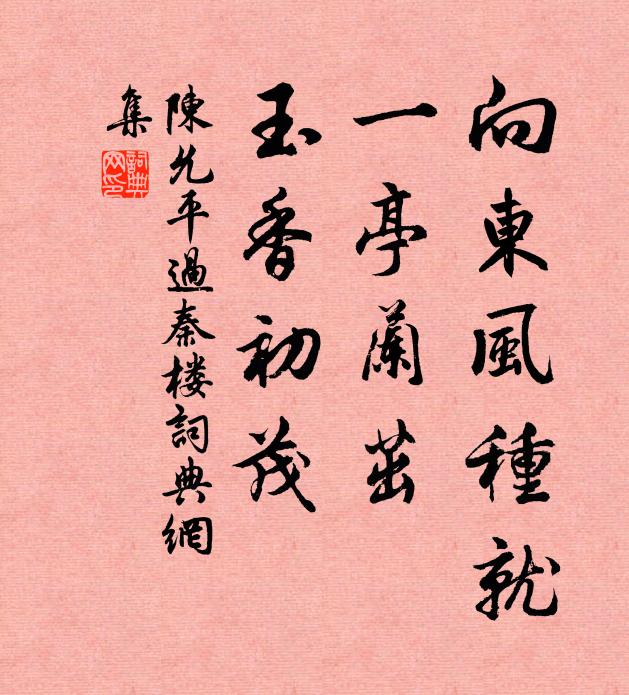 向東風種就
一亭蘭茁
玉香初茂
陳允平過秦楼詞典網
集
詞典網印